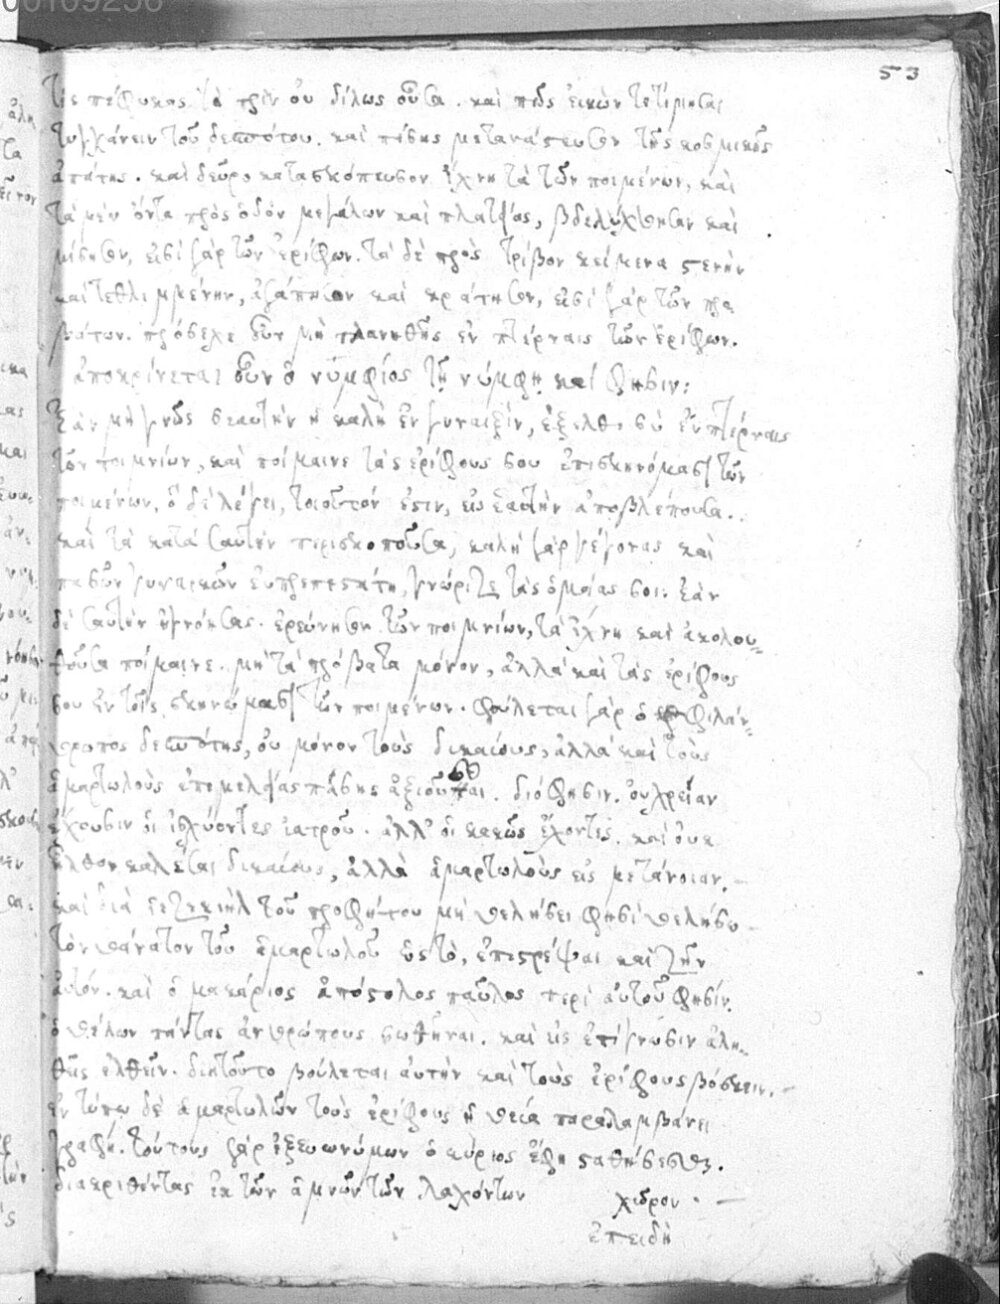 00109256
53
τίς πέφυκας τὸ πρὶν οὐ δίλως οὖσα. καὶ πῶς εἰκὼν τετίμησαι
τυγχάνειν τοῦ δεσπότου. καὶ πάσης μετανάστευσον τῆς κοσμικῆς
ἀπάτης. καὶ δεῦρο κατασκόπευσον ἴχνη τὰ τῶν ποιμένων, καὶ
τὰ μὲν ὄντα πρὸς ὁδὸν μεγάλων καὶ πλατείας, βδελύχθητον καὶ
μίσησον, εἰσὶ γὰρ τῶν ἐρίφων. τὰ δὲ πρὸς τρίβον κείμενα στενὴν
καὶ τεθλιμμένην, ἀγάπησον καὶ κράτησον, εἰσὶ γὰρ τῶν προ
βάτων. πρόσεχε οὖν μὴ πλανηθῇς ἐν πτέρναις τῶν ἐρίφων.
ἀποκρίνεται οὖν ὁ νύμφίος τῇ νύμφῃ καί φησιν:
Ἐὰν μὴ γνῷς σεαυτὴν ἡ καλὴ ἐν γυναιξίν, ἔξελθε σὺ ἐν πτέρναις
τῶν ποιμνίων, καὶ ποίμαινε τὰς ἐρίφους σου ἐπισκηνόμασι τῶν
ποιμένων, ὃ δὲ λέγει, τοιοῦτόν ἐστιν, εἰς ἑαυτὴν ἀποβλέπουσα.
καὶ τὰ κατὰ σαυτὴν περισκοποῦσα, καλὴ γὰρ γέγονας καὶ
πασῶν γυναικῶν εὐπρεπεστάτη, γνώριζε τὰς ὁμοίας σοι. ἐὰν
δὲ σαυτὴν ἠγνόησας. ἐρεύνησον τῶν ποιμνίων, τὰ ἴχνη καὶ ἀκολου
θοῦσα ποίμαινε. μὴ τὰ πρόβατα μόνον, ἀλλὰ καὶ τὰς ἐρίφους
σου ἐν τοῖς σκηνώμασι τῶν ποιμένων. βούλεται γὰρ ὁ φιλάν
θρωπος δεσπότης, οὐ μόνον τοὺς δικαίους, ἀλλὰ καὶ τοὺς
ἁμαρτωλοὺς ἐπιμελείας πάσης ἀξιοῦσθαι. διό φησιν. οὐ χρείαν
ἔχουσιν οἱ ἰσχύοντες ἰατροῦ. ἀλλ' οἱ κακῶς ἔχοντες. καὶ οὐκ
ἦλθον καλέσαι δικαίους, ἀλλὰ ἁμαρτωλοὺς εἰς μετάνοιαν.
καὶ διὰ ἰεζεκιὴλ τοῦ προφήτου μὴ θελήσει φησὶ θελήσω
τὸν θάνατον τοῦ ἁμαρτωλοῦ ὡς τὸ, ἐπιστρέψαι καὶ ζῆν
αὐτόν. καὶ ὁ μακάριος ἀπόστολος παῦλος περὶ αὐτοῦ φησίν,
ὁ θέλων πάντας ἀνθρώπους σωθῆναι. καὶ εἰς ἐπίγνωσιν ἀλη
θείας ἐλθεῖν. διὰ τοῦτο βούλεται αὐτὴν καὶ τοὺς ἐρίφους βόσκειν.
ἐν τύπῳ δὲ ἁμαρτωλῶν τοὺς ἐρίφους ἡ θεία παραλαμβάνει
γραφή. τούτους γὰρ ἐξ εὐωνύμων ὁ κύριος ἔφη σταθήσεσθαι.
διακριθέντας ἐκ τῶν ἀμνῶν τῶν λαχόντων
ἐπειδὴ